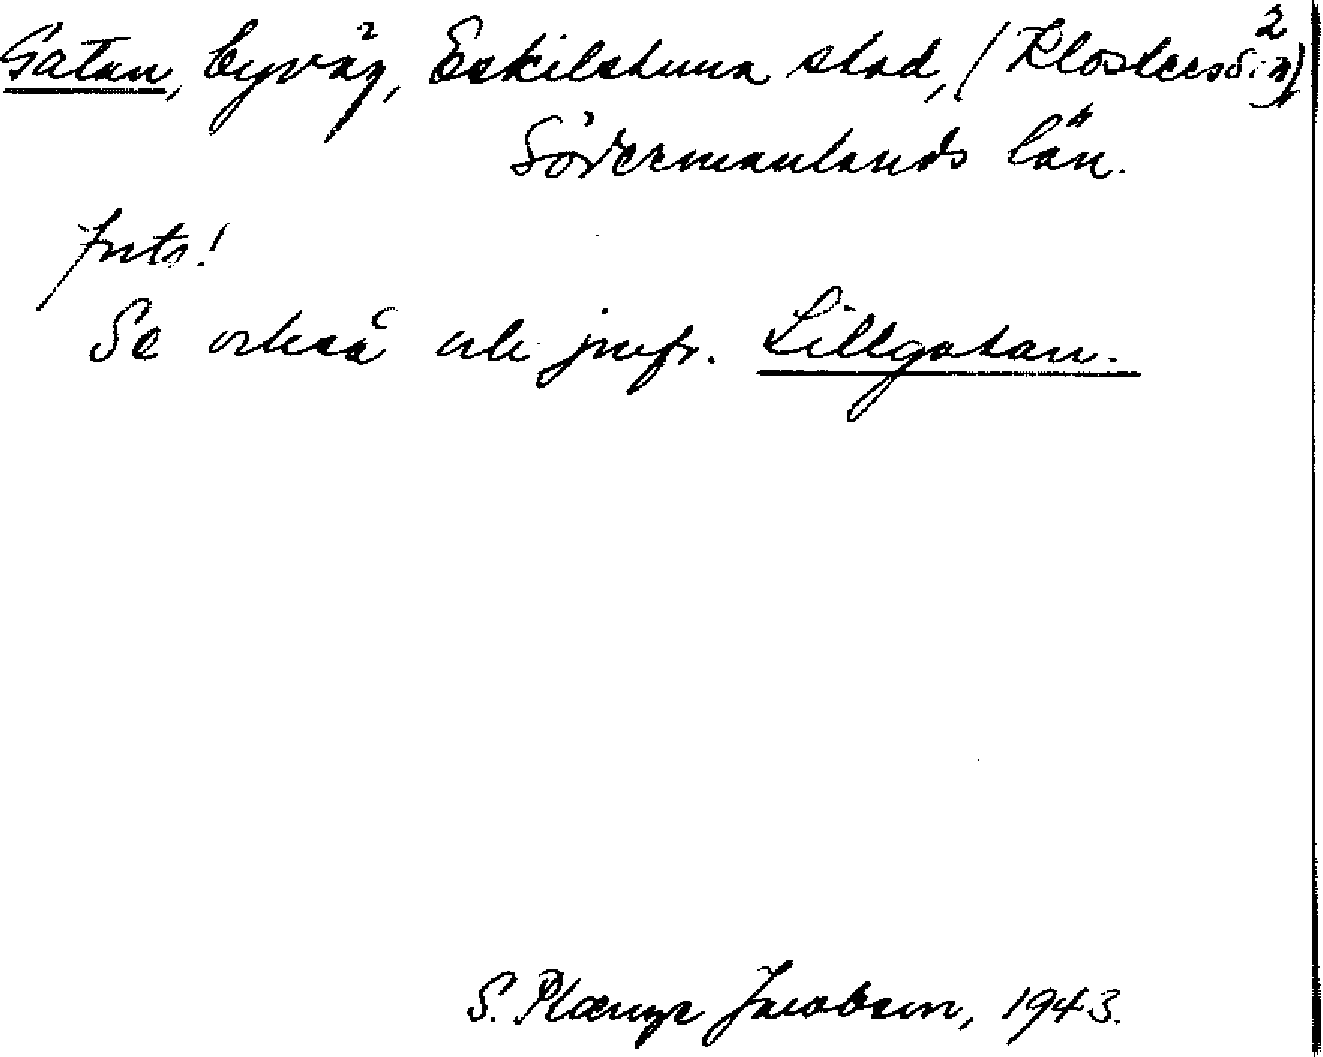 2
Gatan, byväg, Eskilstuna stad, (Klosters s:n)
Södermanlands län.
forts!
Se också och jmfr. Lillgatan.
S. Jacobson, 1943.